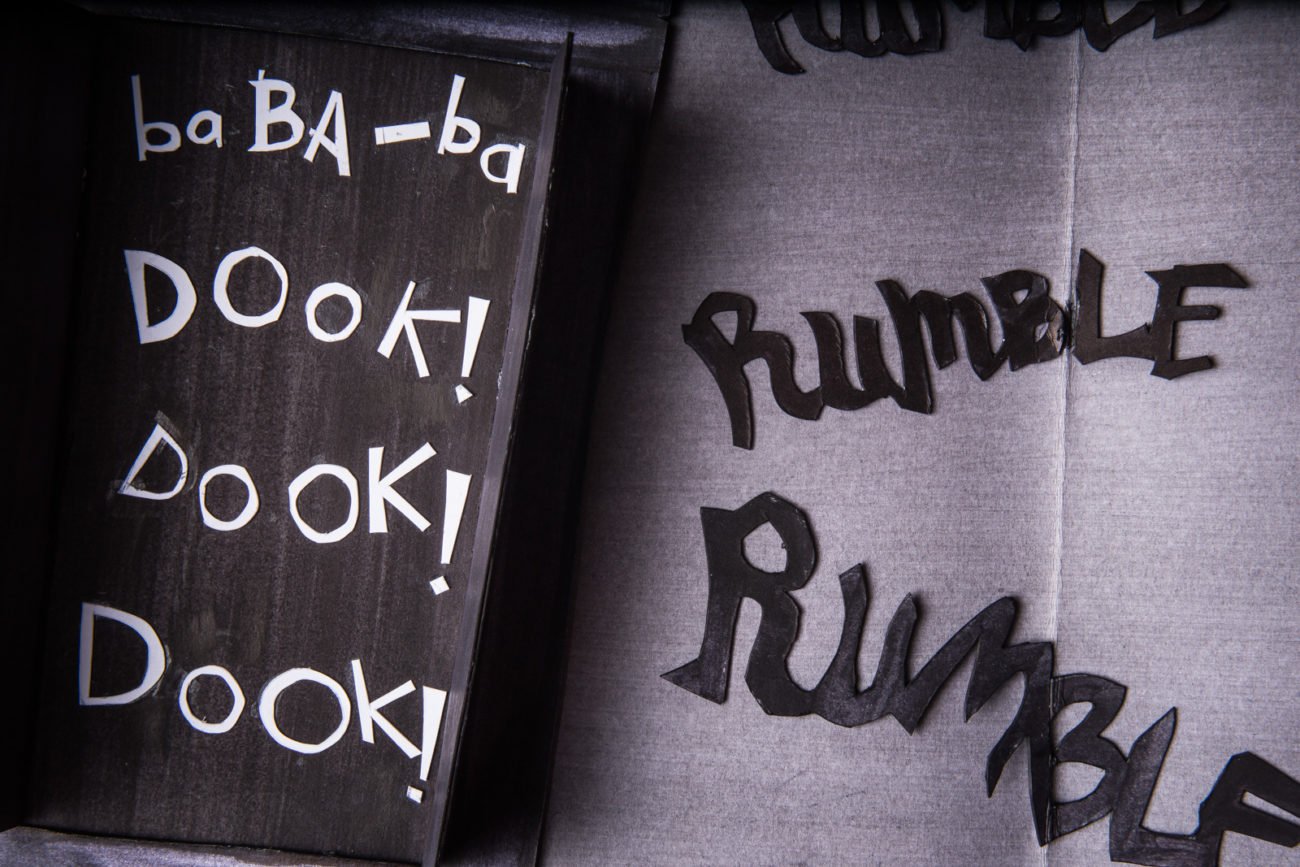 baBA-ba
DOOK!
DOOK!
DOOK!
RUMBLE
RUMBLE
RUMBLE